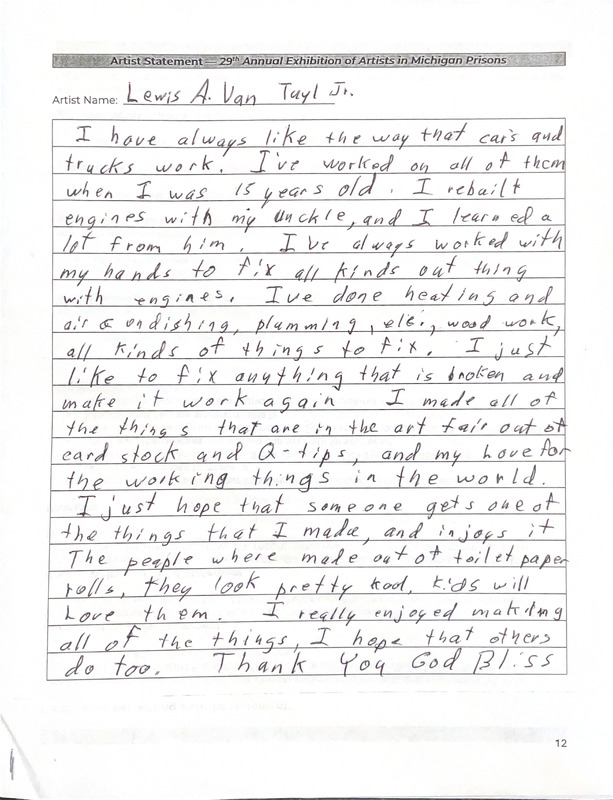 Artist Statement — 29th Annual Exhibition of Artists in Michigan Prisons
Artist Name: Lewis A. Van Tayl Jr.
I have always like the way that car's and
trucks work. I've worked on all of them
when I was 15 years old. I rebuilt
engines with my unckle, and I learned a
lot from him. I've always worked with
my hands to fix all kinds out thing
with engines. I've done heating and
air condishing, plumming, ele., wood work,
all kinds of things to fix. I just
like to fix anything that is broken and
make it work again I made all of
the things that are in the art fair out of
card stock and Q-tips, and my Love for
the working things in the world.
I just hope that someone gets one of
the things that I made, and injoys it
The people where made out of toilet paper
rolls, they look pretty kool, kids will
Love them. I really enjoyed makeing
all of the things, I hope that others
do too. Thank You God Bliss
12